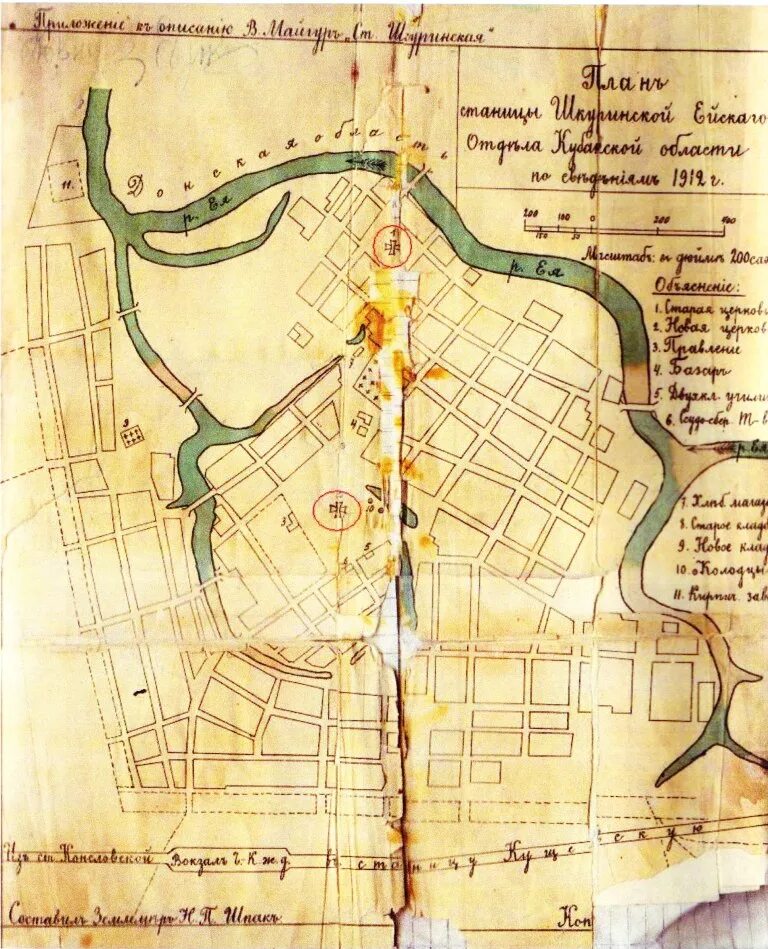 Приложеніе къ описанію В. Майгуръ „Ст. Шкуринская“
Планъ
станицы Шкуринской Ейскаго
Отдѣла Кубанской области
по свѣдѣніямъ 1912 г.
Донская область
р. Ея
р. Ея
200 100 0 200 400
150 50
Масштабъ: въ дюймѣ 200 саж
Объясненіе:
1. Старая церковь
2. Новая церковь
3. Правленіе
4. Базаръ
5. Двухкл. училищ
6. Ссудо-сбер. Т-в
р. Ея
7. Хлѣб. магаз
8. Старое кладб
9. Новое клад
10. Колодцы
11. Кирпич. зав
11.
9
4
3
5
Изъ ст. Кисляковской
Вокзалъ Ч. К. ж. д.
въ станицу Кущевскую
Составилъ Землемѣръ Н. П. Шпакъ
Коп